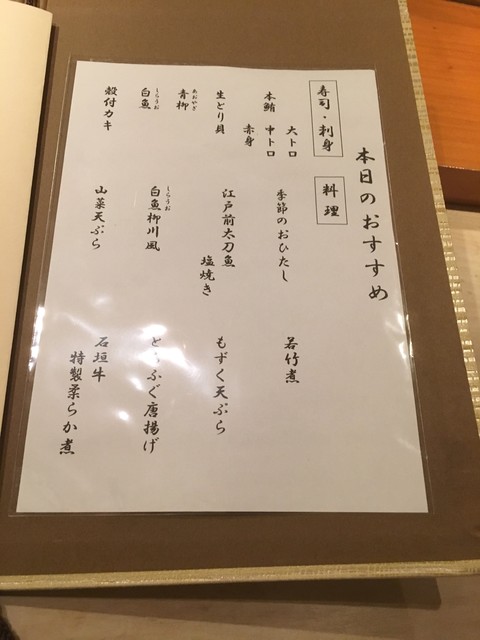 本日のおすすめ
寿司・刺身
本鮪 大トロ
中トロ
赤身
生とり貝
あおやぎ
青柳
しらうお
白魚
殻付カキ
料理
季節のおひたし
江戸前太刀魚
塩焼き
しらうお
白魚柳川風
山菜天ぷら
若竹煮
もずく天ぷら
ふぐ唐揚げ
石垣牛
特製柔らか煮